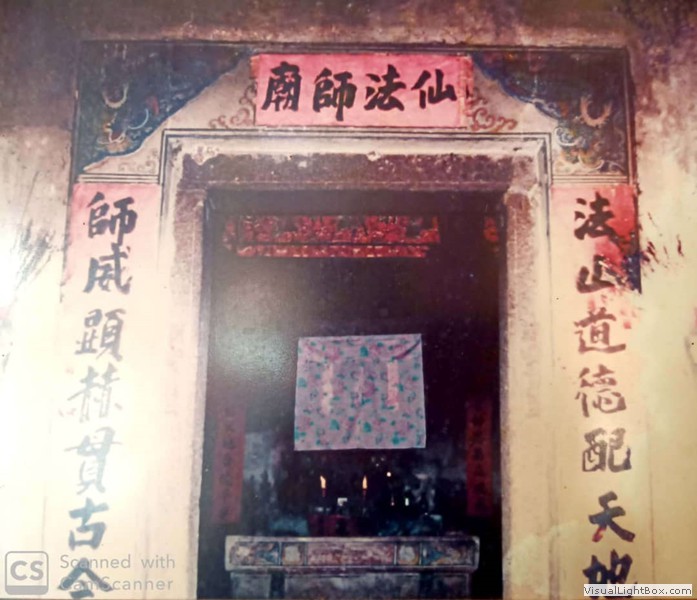 仙法師廟
法道德配天地
師威顯赫貫古今
CS
Scanned with
CamScanner
VisualLightBox.com